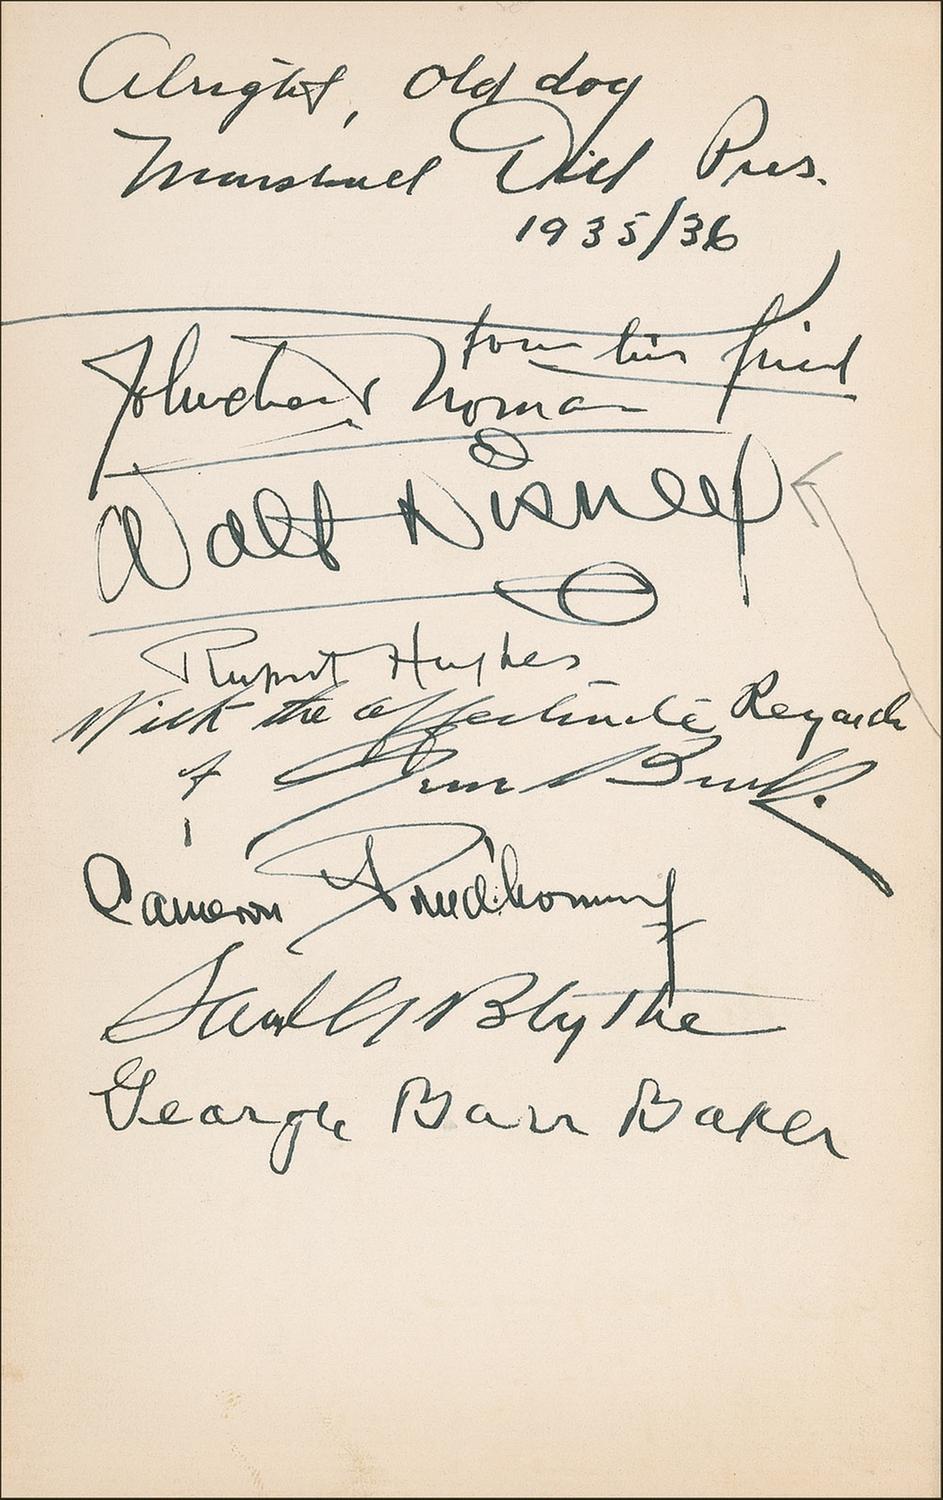 Alright, old dog
Marshall Dill Pres.
1935/36
from his friend
Norman
Walt Disney
Rupert Hughes
With the affectionate Regards
of
Cameron Prud'homme
Sam'l G Blythe
George Barr Baker